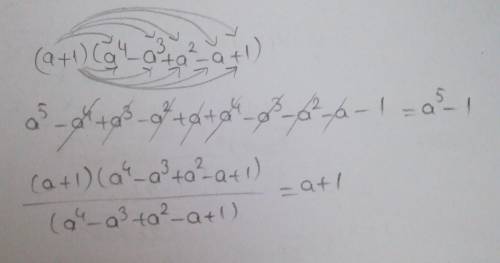 (a+1)(a⁴-a³+a²-a+1)
a⁵-a⁴+a³-a²+a+a⁴-a³-a²-a-1=a⁵-1
(a+1)(a⁴-a³+a²-a+1)
=a+1
(a⁴-a³+a²-a+1)